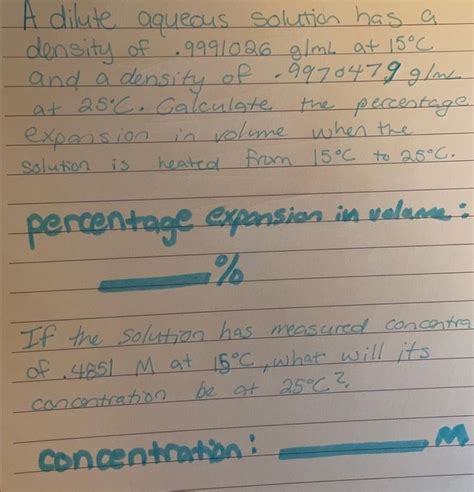 A dilute aqueous solution has a
density of .9991026 g/mL at 15°C
and a density of .9970479 g/mL
at 25°C. Calculate the percentage
expansion in volume when the
solution is heated from 15°C to 25°C.
percentage expansion in volume:
%
If the solution has measured concentra
of .4851 M at 15°C, what will its
concentration be at 25°C?
concentration: M